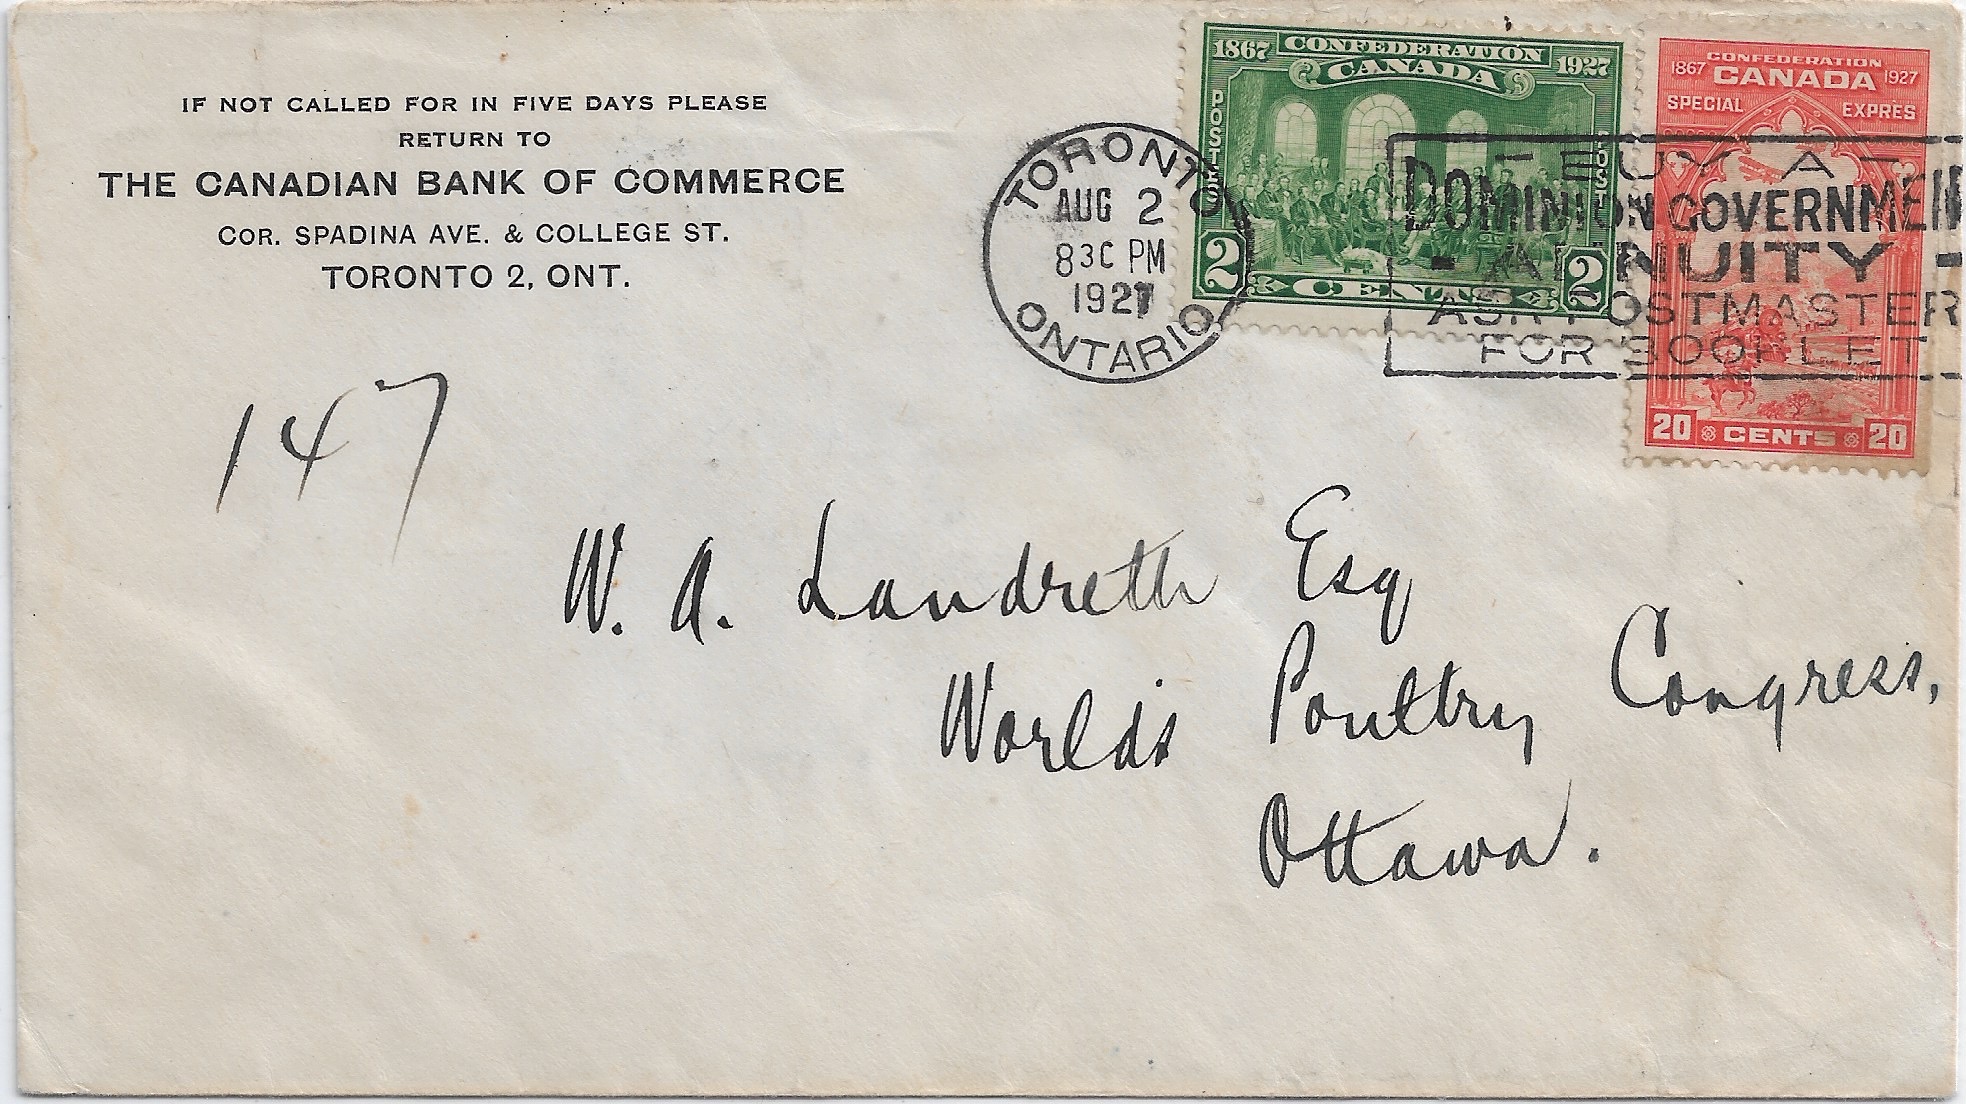 IF NOT CALLED FOR IN FIVE DAYS PLEASE
RETURN TO
THE CANADIAN BANK OF COMMERCE
COR. SPADINA AVE. & COLLEGE ST.
TORONTO 2, ONT.
1867 CONFEDERATION 1927
CANADA
POSTES POSTES
2 CENTS 2
CONFEDERATION
1867 CANADA 1927
SPECIAL EXPRES
20 CENTS 20
TORONTO
AUG 2
830 PM
1927
ONTARIO
BUY A
DOMINION GOVERNMEN
- ANNUITY -
ASK POSTMASTER
FOR BOOKLET
147
W. A. Landreth Esq
World's Poultry Congress,
Ottawa.